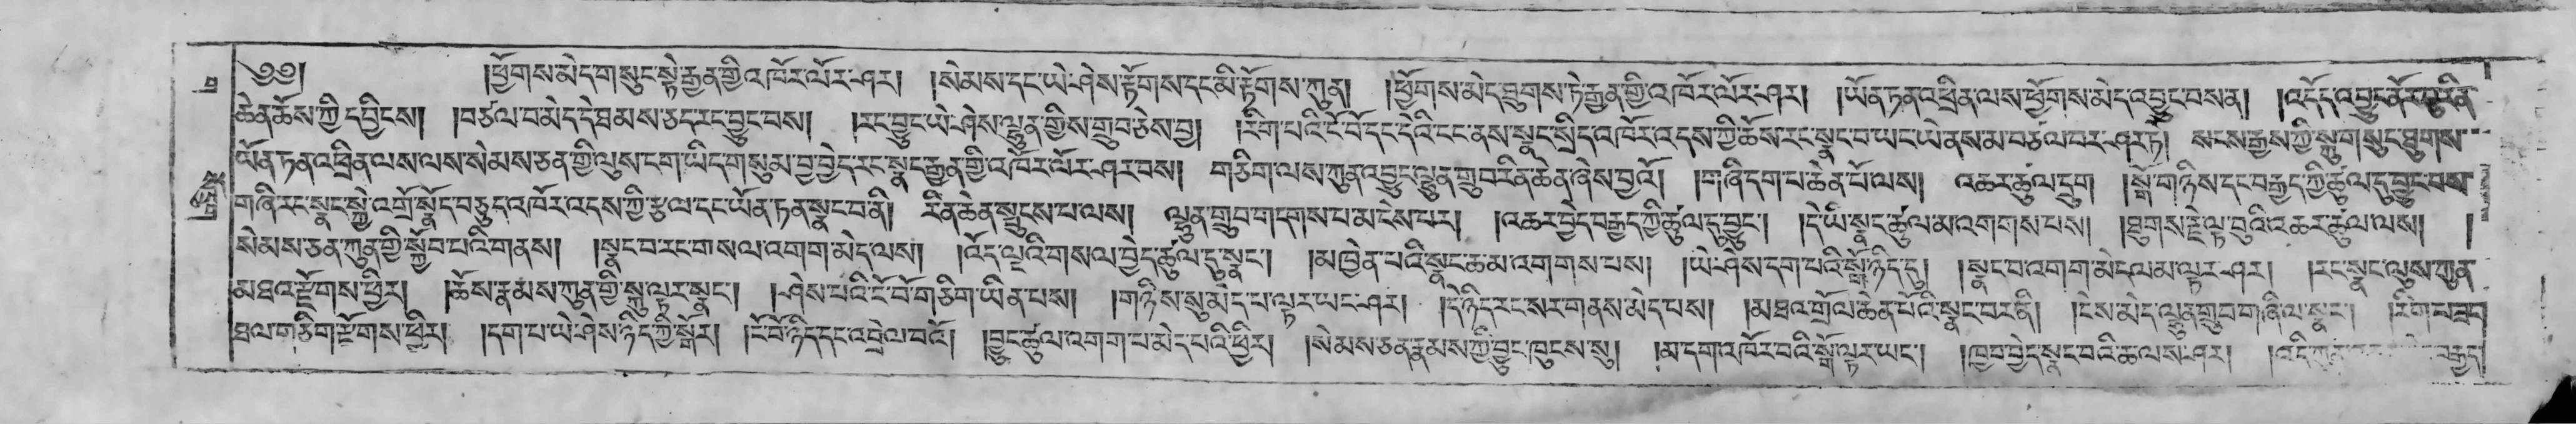 ༄༅། །ཕྱོགས་མེད་གསུང་སྟེ་རྒྱན་གྱི་འཁོར་ལོར་ཤར། །སེམས་དང་ཡེ་ཤེས་རྟོགས་དང་མི་རྟོགས་ཀུན། །ཕྱོགས་མེད་ཐུགས་ཏེ་རྒྱན་གྱི་འཁོར་ལོར་ཤར། །ཡོན་ཏན་འཕྲིན་ལས་ཕྱོགས་མེད་འབྱུང་བསན། །འདོད་འབྱུང་ནོར་བུ་རིན
ཆེན་ཆོས་ཀྱི་དབྱིངས། །བཙལ་བ་མེད་དེ་ཐམས་ཅད་རང་བྱུང་བས། །རང་བྱུང་ཡེ་ཤེས་ལྷུན་གྱིས་གྲུབ་ཅེས་བྱ། །རིག་པའི་ངོ་བོ་དང་དེའི་ངང་ནས་སྣང་སྲིད་འཁོར་འདས་ཀྱི་ཆོས་རང་སྣང་བ་ཡང་ཡེ་ནས་མ་བཙལ་བར་ཤར་ཏེ། སངས་རྒྱས་ཀྱི་སྐུ་གསུང་ཐུགས་
ཡོན་ཏན་འཕྲིན་ལས་ལས་སེམས་ཅན་གྱི་ལུས་ངག་ཡིད་གསུམ་བྱ་བྱེད་རང་སྣང་རྒྱན་གྱི་འཁོར་ལོར་ཤར་བས། གཅིག་ལས་ཀུན་འབྱུང་ལྷུན་གྲུབ་རིན་ཆེན་ཞེས་བྱའོ། །གཞི་དག་པ་ཆེན་པོ་ལས། འཆར་ཚུལ་དྲུག །སྒོ་གཉིས་དང་བརྒྱད་ཀྱི་ཚུལ་དུ་བྱུང་བས
གཞི་རང་སྣང་སྐྱེ་འགྲོ་སྣོད་བཅུད་འཁོར་འདས་ཀྱི་རྩལ་དང་ཡོན་ཏན་སྣང་བ་ནི། རིན་ཆེན་སྤུངས་པ་ལས། ལྷུན་གྲུབ་གདགས་པ་མ་ངེས་པར། །འཆར་བྱེད་བརྒྱད་ཀྱི་ཚུལ་དུ་བྱུང་། །དེ་ཡི་སྣང་ཚུལ་མ་འགགས་པས། །ཐུགས་རྗེ་ལྟ་བུའི་འཆར་ཚུལ་ལས། །
སེམས་ཅན་ཀུན་གྱི་སྐྱོབ་པའི་གནས། །སྣང་བ་རང་གསལ་འགག་མེད་ལས། །འོད་ལྔའི་གསལ་བྱེད་ཚུལ་དུ་སྣང་། །མཁྱེན་པའི་སྣང་ཆ་མ་འགགས་པས། །ཡེ་ཤེས་དག་པའི་སྒོ་ཉིད་དུ། །སྣང་བ་འགག་མེད་ལམ་ལྟར་ཤར། །རང་སྣང་ལུས་ཀུན
མཐའ་རྫོགས་ཕྱིར། །ཆོས་རྣམས་ཀུན་གྱི་སྐུ་ལྟར་སྣང་། །ཤེས་པའི་ངོ་བོ་གཅིག་ཡིན་པས། །གཉིས་སུ་མེད་པ་ལྟར་ཡང་ཤར། །དེ་ཉིད་རང་སར་གནས་མེད་པས། །མཐའ་གྲོལ་ཆེན་པོའི་སྣང་བར་ནི། །ངེས་མེད་ལྷུན་གྲུབ་གཞི་ལ་སྣང་། །རིག་པ་ཟང
ཐལ་གཅིག་རྫོགས་ཕྱིར། །དག་པ་ཡེ་ཤེས་ཉིད་ཀྱི་སྒོར། །ངོ་བོ་ཉིད་དང་འབྲེལ་བའོ། །བྱུང་ཚུལ་འགག་པ་མེད་པའི་ཕྱིར། །སེམས་ཅན་རྣམས་ཀྱི་བྱུང་ཁུངས་སུ། །མ་དག་འཁོར་བའི་སྒོ་ལྟར་ཡང་། །ཁྱབ་བྱེད་སྣང་བའི་ཆ་ལས་ཤར། །འདི་ཀུན